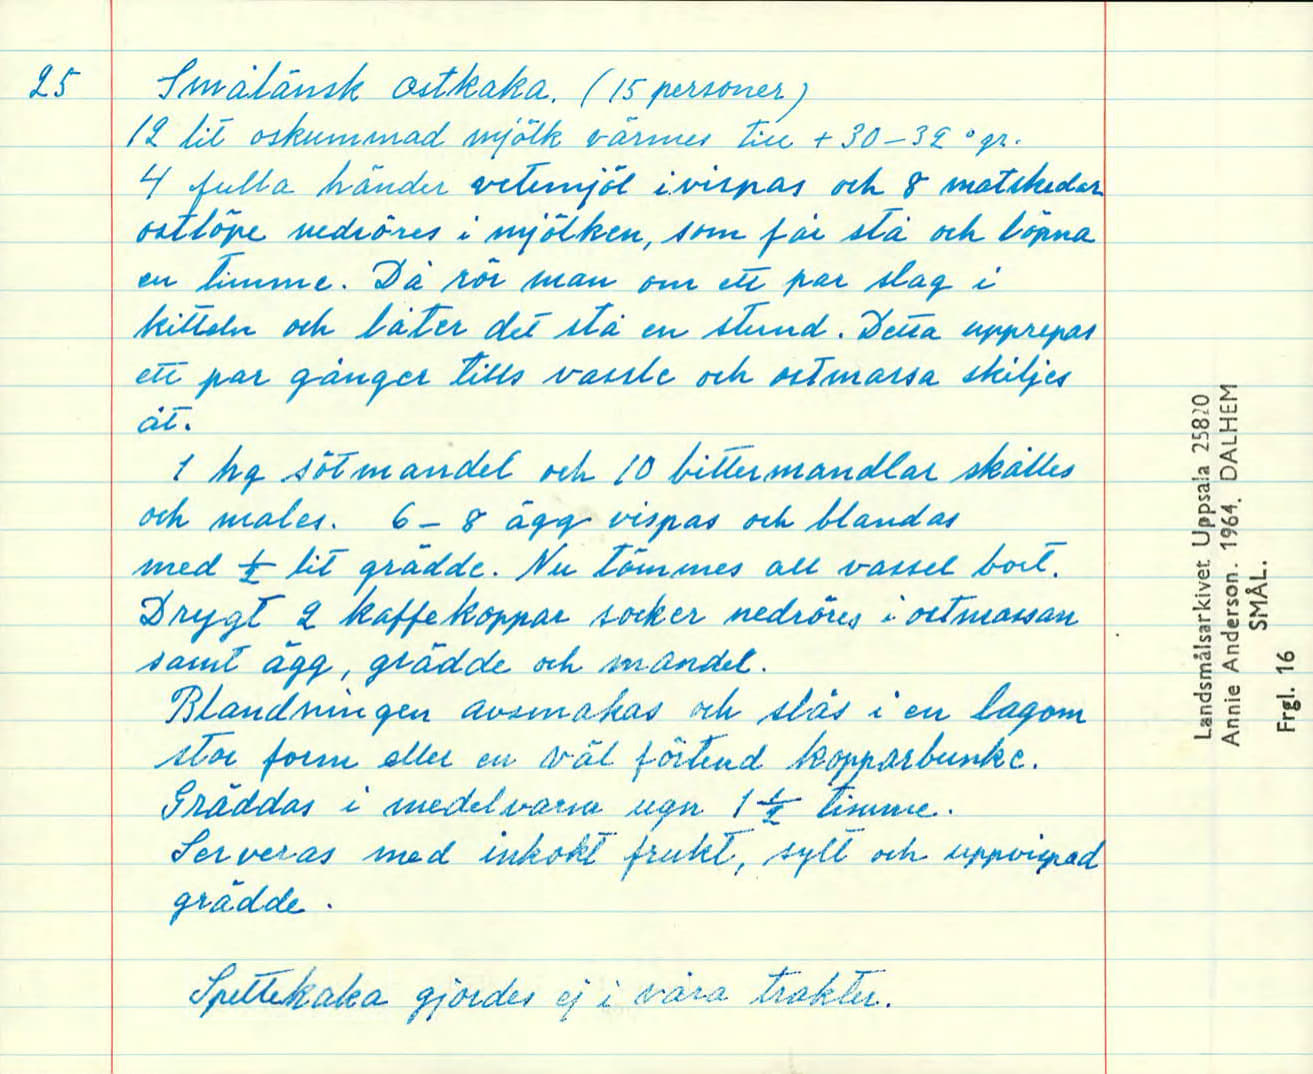 25 Småländsk ostkaka. (15 personer)
12 lit oskummad mjölk värmes till + 30 – 32 ° gr.
4 fulla händer vetemjöl ivispas och 8 matskedar
ostlöpe nedröres i mjölken, som får stå och löpna
en timme. Då rör man om ett par slag i
kitteln och låter det stå en stund. Detta upprepas
ett par gånger tills vassle och ostmassa skiljes
åt.
1 hg sötmandel och 10 bittermandlar skållas
och males. 6 – 8 ägg vispas och blandas
med ½ lit grädde. Nu tömmes all vassel bort.
Drygt 2 kaffekoppar socker nedröres i ostmassan
samt ägg, grädde och mandel.
Blandningen avsmakas och slås i en lagom
stor form eller en väl förtend kopparbunke.
Gräddas i medelvarm ugn 1 ½ timme.
Serveras med inkokt frukt, sylt och uppvispad
grädde.
Spettekaka gjordes ej i våra trakter.
Landsmålsarkivet Uppsala 25820
Annie Anderson. 1964. DALHEM
SMÅL.
Frgl. 16